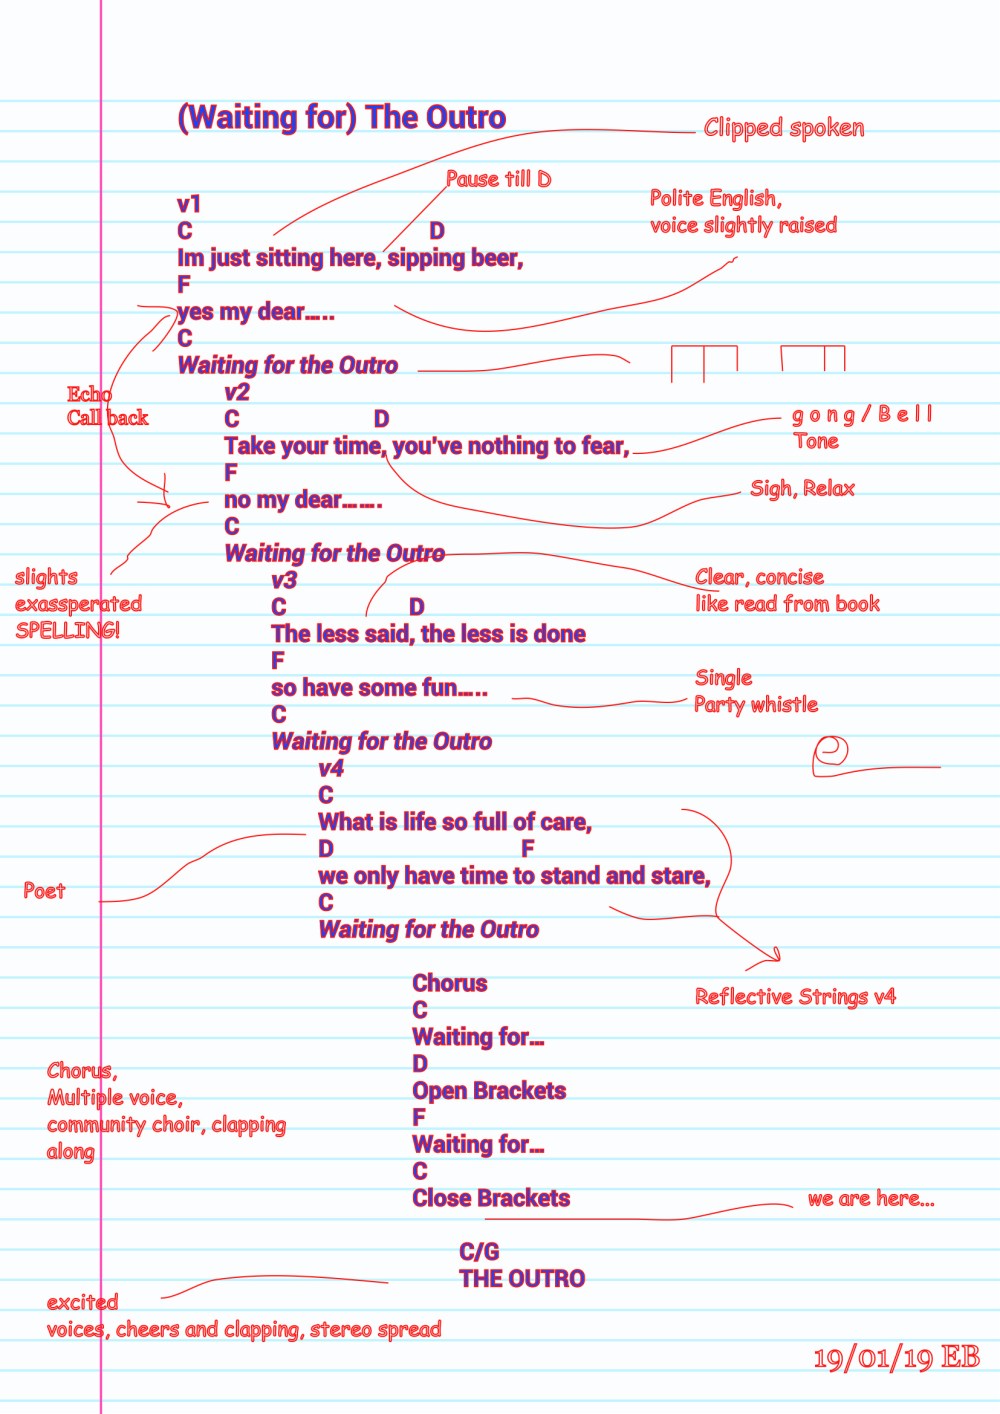 (Waiting for) The Outro
Clipped spoken
Pause till D
Polite English,
voice slightly raised
v1
C D
Im just sitting here, sipping beer,
F
yes my dear.....
C
Waiting for the Outro
Echo
Call back
v2
C D
Take your time, you've nothing to fear,
gong/Bell
Tone
F
no my dear.......
Sigh, Relax
C
Waiting for the Outro
slights
exassperated
SPELLING!
v3
C D
The less said, the less is done
Clear, concise
like read from book
F
so have some fun.....
Single
Party whistle
C
Waiting for the Outro
v4
C
What is life so full of care,
D F
we only have time to stand and stare,
Poet
C
Waiting for the Outro
Reflective Strings v4
Chorus
C
Waiting for...
D
Open Brackets
F
Waiting for...
C
Close Brackets
Chorus,
Multiple voice,
community choir, clapping
along
we are here...
C/G
THE OUTRO
excited
voices, cheers and clapping, stereo spread
19/01/19 EB